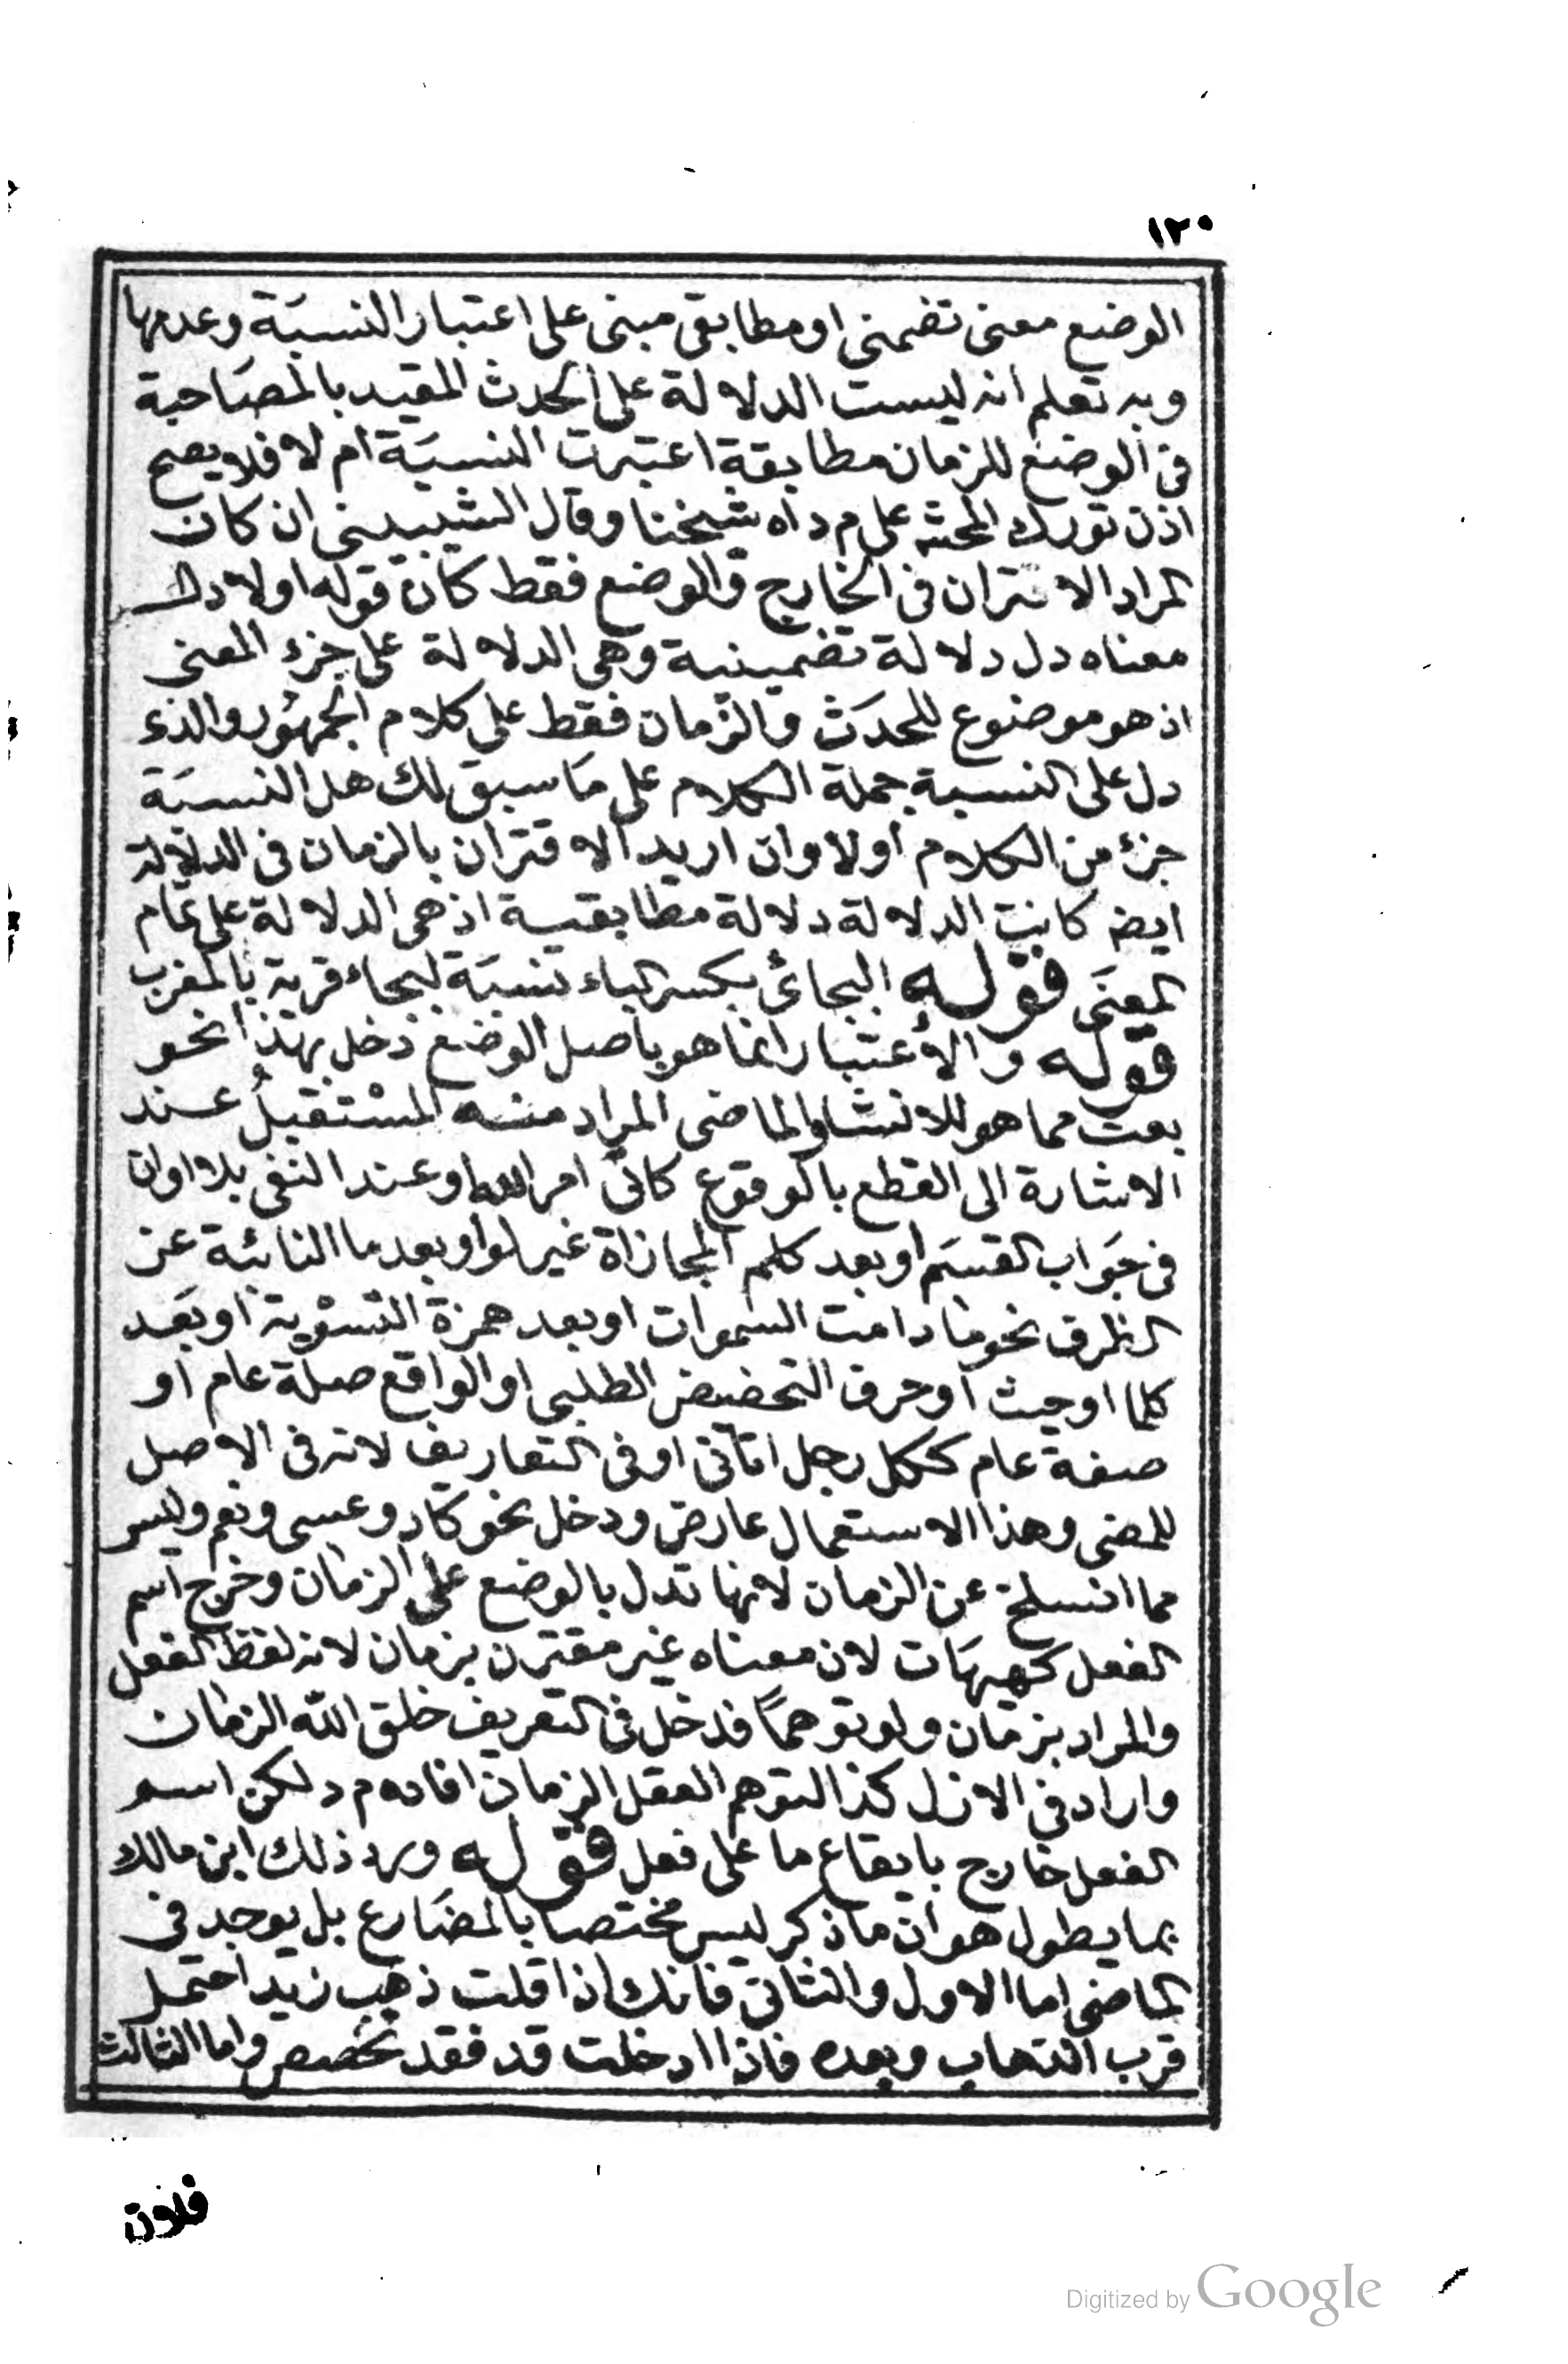 ١٢٠
الوضع معنى تضمنى او مطابقى مبنى على اعتبار النسبة وعدمها
وبه تعلم انه ليست الدلالة على الحدث المقيد بالمصاحبة
فى الوضع للزمان مطابقة اعتبرت النسبة ام لا فلا يصح
اذن تورك المحشى على م د اه شيخنا وقال الشيبينى ان كان
المراد الاقتران فى الخارج والوضع فقط كان قوله اولا دلت
معناه دل دلالة تضمينية وهى الدلالة على جزء المعنى
اذ هو موضوع للحدث والزمان فقط على كلام الجمهور والذى
دل على النسبة جملة الكلام على ما سبق لك هل النسبة
جزء من الكلام اولا وان اريد الاقتران بالزمان فى الدلالة
ايضا كانت الدلالة دلالة مطابقية اذ هى الدلالة على تمام
المعنى قوله البجائى بكسر الباء نسبة لبجاء قرية بالمغرب
قوله والاعتبار انما هو باصل الوضع دخل بهذا نحو
بعت مما هو للانشا والماضى المراد منه المستقبل عند
الاشارة الى القطع بالوقوع كاتى امر الله او عند النفى بلا او ان
فى جواب القسم او بعد كلم المجازاة غير لو او بعد ما النائبة عن
الظرف نحو ما دامت السموات او بعد همزة التسوية او بعد
كلما او حيث او حرف التحضيض الطلبى او الواقع صلة عام او
صفة عام ككل رجل اتانى او فى التعاريف لانه فى الاصل
للمضى وهذا الاستعمال عارض ودخل نحو كاد وعسى ونعم وليس
مما انسلخ عن الزمان لانها تدل بالوضع على الزمان وخرج اسم
الفعل كهيهات لان معناه غير مقترن بزمان لانه لفظ الفعل
والمراد بزمان ولو توهماً فدخل فى التعريف خلق الله الزمان
واراد فى الازل كذا لتوهم العقل الزمان افاده م د لكن اسم
الفعل خارج بايقاع ما على فعل قوله ورد ذلك ابن مالك
بما يطول هو ان ما ذكر ليس مختصا بالمضارع بل يوجد فى
الماضى اما الاول والثانى فانك اذا قلت ذهب زيد احتمل
قرب الذهاب وبعده فاذا ادخلت قد فقد تخصص واما الثالث
فلان
Digitized by Google